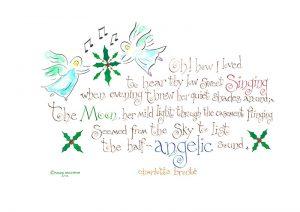 Oh! how I loved
to hear thy low Sweet Singing
when evening threw her quiet shades around,
The Moon, her mild light through the casement flinging
Seemed from the Sky to list
the half-angelic sound.
Charlotte Bronte